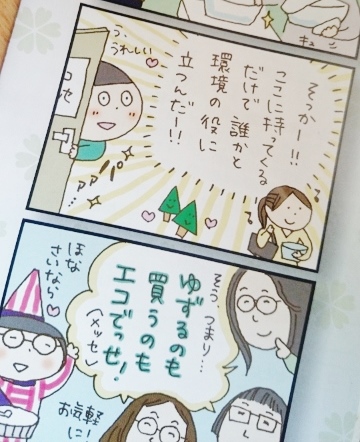 キュン
そっかー!!
ここに持ってくる
だけで誰かと
環境の役に
立つんだー!!
う、
うれしい
アアァ…
そう、つまり…
ゆずるのも
買うのも
エコでっせ!
(メッセ)
ほな
さいなら
お気軽
に!